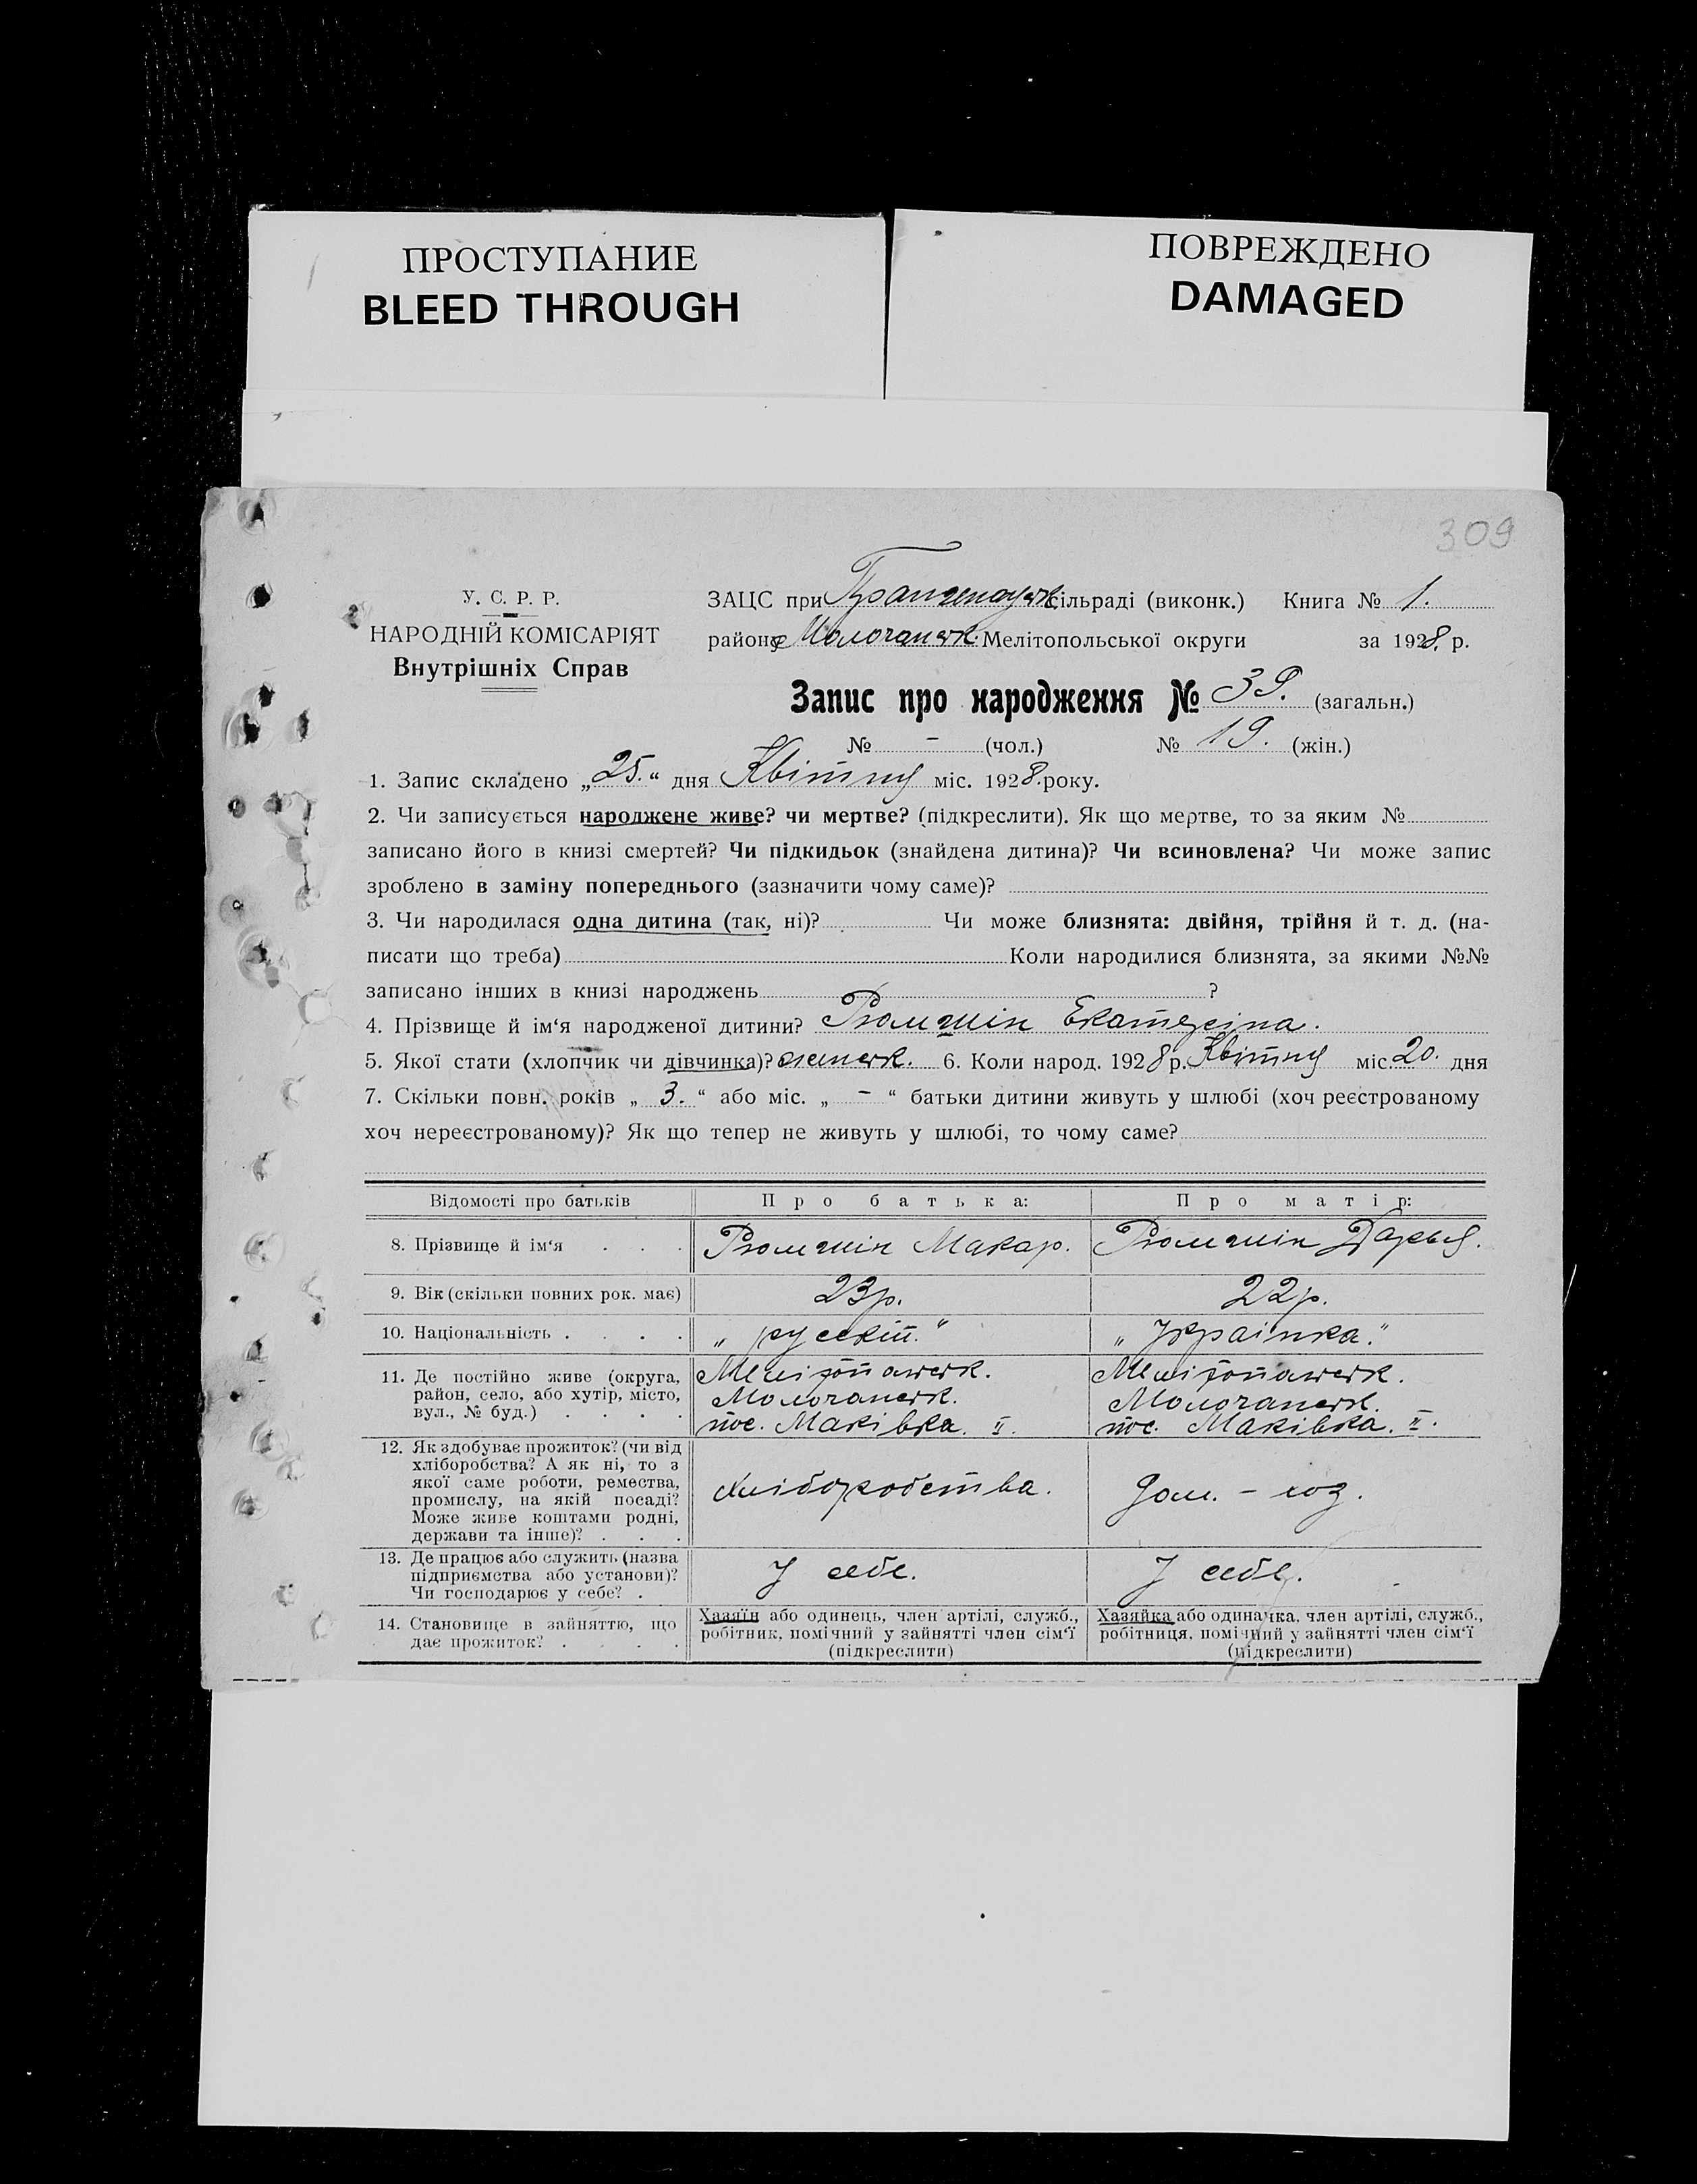 ПРОСТУПАНИЕ
BLEED THROUGH
ПОВРЕЖДЕНО
DAMAGED
309
У. С. Р. Р.
НАРОДНІЙ КОМІСАРІЯТ
Внутрішніх Справ
ЗАЦС при сільраді (виконк.) Книга № 1.
району Молочанск. Мелітопольської округи за 1928. р.
Запис про народження № 39. (загальн.)
№ - (чол.) № 19. (жін.)
1. Запис складено „25.“ дня Квітня міс. 1928. року.
2. Чи записується народжене живе? чи мертве? (підкреслити). Як що мертве, то за яким №
записано його в книзі смертей? Чи підкидьок (знайдена дитина)? Чи всиновлена? Чи може запис
зроблено в заміну попереднього (зазначити чому саме)?
3. Чи народилася одна дитина (так, ні)? Чи може близнята: двійня, трійня й т. д. (на-
писати що треба) Коли народилися близнята, за якими №№
записано інших в книзі народжень ?
4. Прізвище й ім‘я народженої дитини? Екатеріна.
5. Якої стати (хлопчик чи дівчинка)? женск. 6. Коли народ. 1928 р. Квітня міс. 20. дня
7. Скільки повн. років „ 3. “ або міс. „ - “ батьки дитини живуть у шлюбі (хоч реєстрованому
хоч нереєстрованому)? Як що тепер не живуть у шлюбі, то чому саме?
Відомості про батьків Про батька: Про матір:
8. Прізвище й ім‘я . . . Макар. Дарья.
9. Вік (скільки повних рок. має) 23р. 22р.
10. Національність . . . . „русскій.“ „Українка.“
11. Де постійно живе (округа,
район, село, або хутір, місто,
вул., № буд.) . . . .
Мелітопольск.
Молочанск.
пос. Маківка. II.
Мелітопольск.
Молочанск.
пос. Маківка. II.
12. Як здобуває прожиток? (чи від
хліборобства? А як ні, то з
якої саме роботи, ремества,
промислу, на якій посаді?
Може живе коштами родні,
держави та інше)? . . .
хліборобства.
дом. - хоз.
13. Де працює або служить (назва
підприємства або установи)?
Чи господарює у себе? .
У себе.
У себе.
14. Становище в зайняттю, що
дає прожиток? . . . .
Хазяїн або одинець, член артілі, служб.,
робітник, помічний у зайнятті член сім‘ї
(підкреслити)
Хазяйка або одиначка, член артілі, служб.,
робітниця, помічний у зайнятті член сім‘ї
(підкреслити)